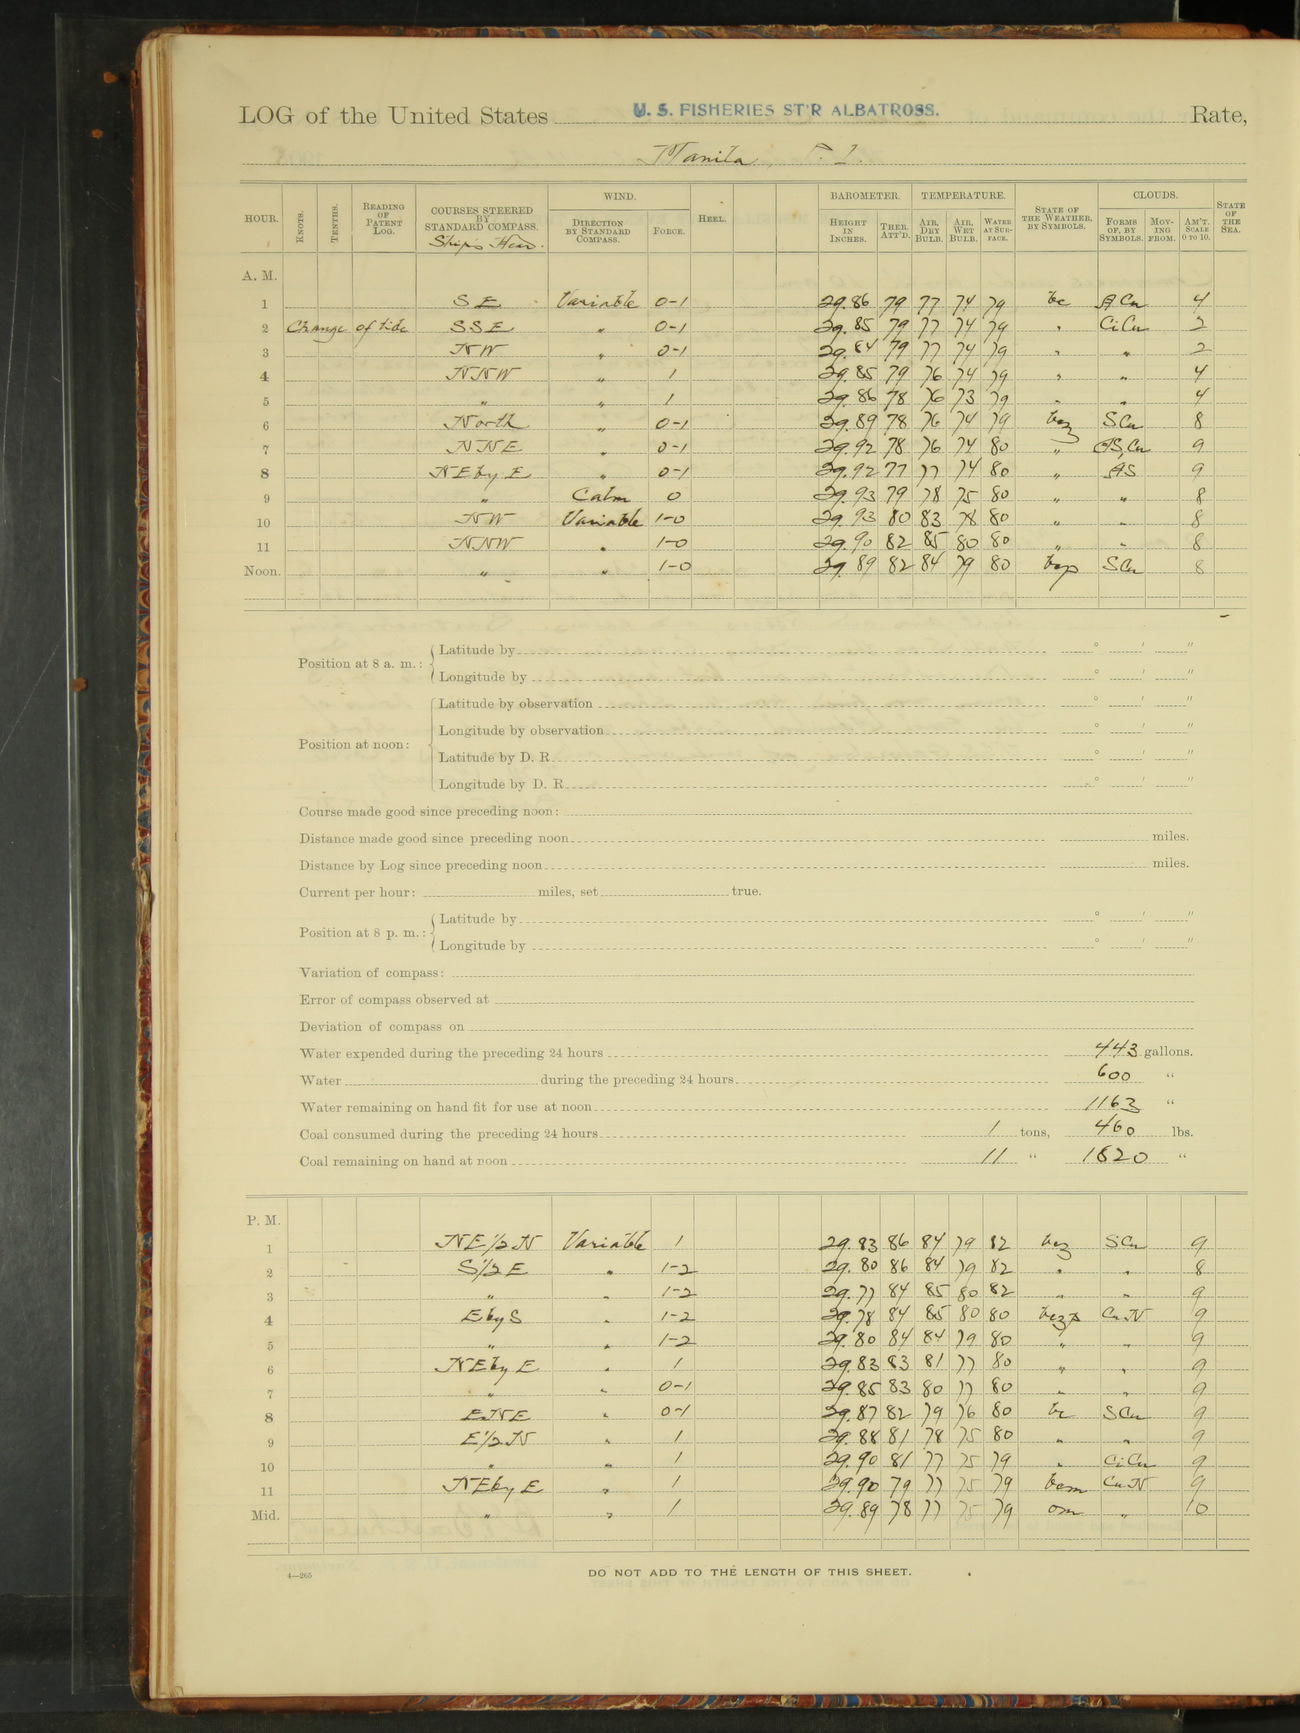 LOG of the United States U. S. FISHERIES ST'R ALBATROSS. Rate,
Manila, P. I.
HOUR. KNOTS. TENTHS. READING OF PATENT LOG. COURSES STEERED BY STANDARD COMPASS. Ship's Head. WIND. DIRECTION BY STANDARD COMPASS. FORCE. HEEL. BAROMETER. HEIGHT IN INCHES. THER. ATT'D. TEMPERATURE. AIR, DRY BULB. AIR, WET BULB. WATER AT SURFACE. STATE OF THE WEATHER, BY SYMBOLS. CLOUDS. FORMS OF, BY SYMBOLS. MOVING FROM. AM'T. SCALE 0 TO 10. STATE OF THE SEA.
A. M.
1 SE Variable 0-1 29.86 79 77 74 79 bc A Cu 4
2 Change of tide SSE " 0-1 29.85 79 77 74 79 " Ci Cu 2
3 NW " 0-1 29.84 79 77 74 79 " " 2
4 NNW " 1 29.85 79 76 74 79 " " 4
5 " " 1 29.86 78 76 73 79 " " 4
6 North " 0-1 29.89 78 76 74 79 bcz S.Cu 8
7 NNE " 0-1 29.92 78 76 74 80 " AS, Cu 9
8 NE by E " 0-1 29.92 77 77 74 80 " AS 9
9 " Calm 0 29.93 79 78 75 80 " " 8
10 NW Variable 1-0 29.93 80 83 78 80 " " 8
11 NNW " 1-0 29.90 82 85 80 80 " " 8
Noon. " " 1-0 29.89 82 84 79 80 S Cu 8
Position at 8 a. m.: Latitude by ° ′ ″
Longitude by ° ′ ″
Position at noon: Latitude by observation ° ′ ″
Longitude by observation ° ′ ″
Latitude by D. R. ° ′ ″
Longitude by D. R. ° ′ ″
Course made good since preceding noon:
Distance made good since preceding noon miles.
Distance by Log since preceding noon miles.
Current per hour: miles, set true.
Position at 8 p. m.: Latitude by ° ′ ″
Longitude by ° ′ ″
Variation of compass:
Error of compass observed at
Deviation of compass on
Water expended during the preceding 24 hours 443 gallons.
Water during the preceding 24 hours 600 "
Water remaining on hand fit for use at noon 1163 "
Coal consumed during the preceding 24 hours 1 tons, 460 lbs.
Coal remaining on hand at noon 11 " 1820 "
P. M.
1 NE 1/2 N Variable 1 29.83 86 84 79 82 bcz S Cu 9
2 S 1/2 E " 1-2 29.80 86 84 79 82 " " 8
3 " " 1-2 29.77 84 85 80 82 " " 9
4 E by S " 1-2 29.78 84 85 80 80 Cu N 9
5 " " 1-2 29.80 84 84 79 80 " " 9
6 NE by E " 1 29.83 83 81 77 80 " " 9
7 " " 0-1 29.85 83 80 77 80 " " 9
8 ENE " 0-1 29.87 82 79 76 80 bc S Cu 9
9 E 1/2 N " 1 29.88 81 78 75 80 " " 9
10 " " 1 29.90 81 77 75 79 " Ci Cu 9
11 NE by E " 1 29.90 79 77 75 79 bcm Cu N 9
Mid. " " 1 29.89 78 77 75 79 om " 10
4—265
DO NOT ADD TO THE LENGTH OF THIS SHEET.